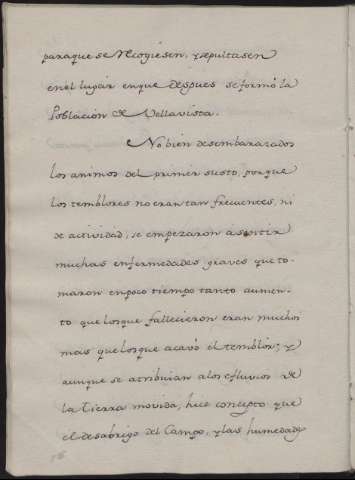 paraque se recogiesen, y sepultasen
en el lugar enque despues se formó la
Poblacion de Vellavista.
No bien desembarazados
los animos del primer susto, porque
los temblores no eran tan frecuentes, ni
de actividad, se empezaron a sentir
muchas enfermedades graves que to-
maron enpoco tiempo tanto aumen-
to que losque fallecieron eran muchos
mas quelosque acavó el temblor; y
aunque se atribuian alos efluvios de
la tierra movida, hice concepto que
el desabrigo del Campo, y las humedad